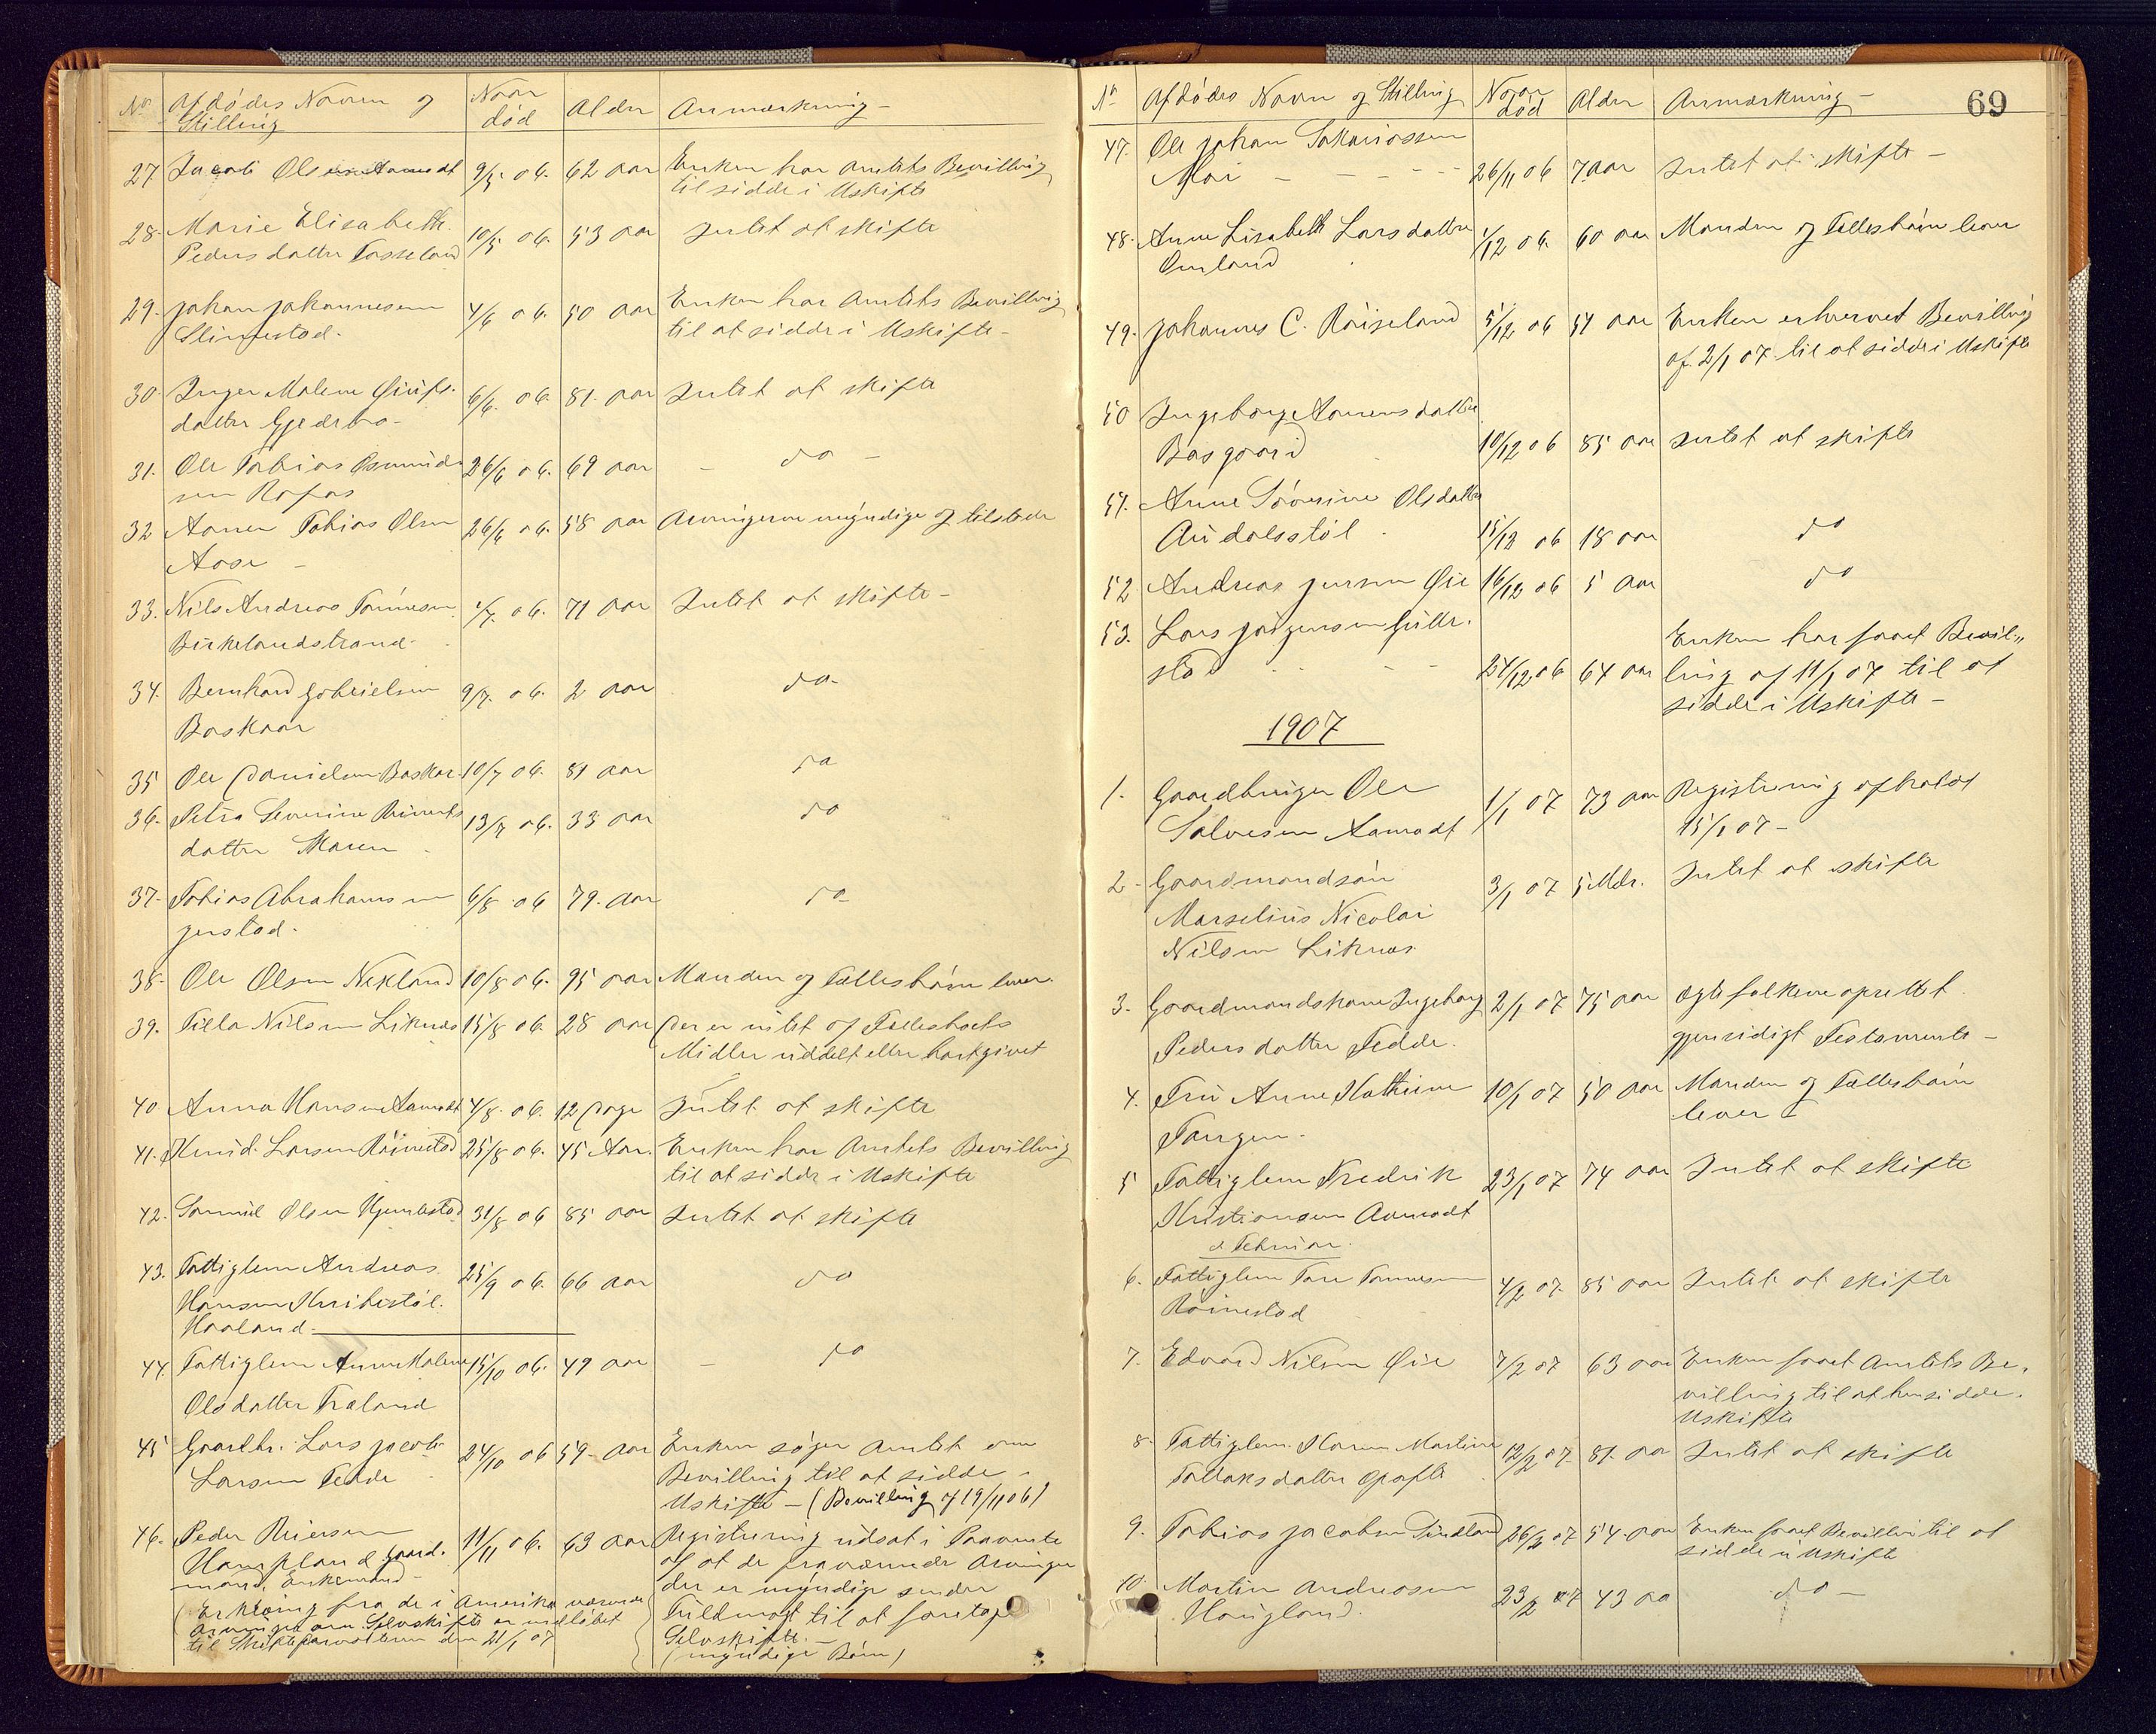 No Afdødes Navn og Stilling Naar død Alder Anmærkning
27 Jacob Olsen Aamodt 9/5 06. 62 aar Enken har Amtets Bevilling
til sidde i Uskifte
28. Marie Elisabeth 10/5 06. 53 aar Intet at skifte
Pedersdatter Fosseland
29. Johan Johannesen 4/6 06. 50 aar Enken har Amtets Bevilling
Slimestad. til at sidde i Uskifte -
30. Inger Malene 6/6. 06. 81. aar Intet at skifte
datter Gjedebo -
31. Ole Tobias Osmund- 26/6 06. 69 aar - do -
sen Rafos
32 Aanen Tobias Olsen 26/6 06. 58 aar Arvingerne myndige og tilstede
Aase -
33. Nils Andreas Tønnesen 1/7. 06. 71 aar Intet at skifte -
Birkelandstrand.
34. Bernhard Gabrielsen 9/7. 06. 2 aar do.
Boskaar
35 Ole Danielsen Boskar. 10/7 06. 81 aar do
36. Petra Severine Reinerts 13/7 06. 33 aar do
datter Moren
37. Tobias Abrahamsen 6/8 06 79. aar do
Jerstad.
38. Ole Olsen Nekland 10/8 06. 95 aar Manden og Fællesbørn lever.
39. Tilla Nilsen Liknes 15/8 06. 28 aar Der er intet af Fællesboets
Midler uddelt eller bortgivet
40 Anna Hansen Aamodt 4/8. 06. 12 Dage Intet at skifte
41. Knud Larsen Røinestad 25/8 06. 45 Aar. Enken har Amtets Bevilling
til at sidde i Uskifte
42. Samuel Olsen 31/8 06 85 aar Intet at skifte
43. Fattiglem Andreas 25/9 06. 66 aar do
Hansen
Haaland.
44. Fattiglem Anne Malene 15/10 06. 49 aar - do
Olsdatter Træland
45 Gaardbr. Lars Jacob 24/10 06 59. aar Enken søger Amtet om
Larsen Fedde Bevilling til at sidde i
Uskifte - (Bevilling af 19/11 06)
46. Peder Reiersen 11/11 06. 63 aar Registrering udsat i Paavente
Gaard- af at de fraværende Arvinger
mand, Enkemand - der er myndige sender
(Erklæring fra de i Amerika værende Fuldmagt til at foretage
Arvinger om Selvskifte er indløbet Selvskifte. -
til Skifteforvalteren den 21/1 07 (myndige Børn)
69
No Afdødes Navn og Stilling Naar død Alder Anmærkning -
47. Ole Johan Sakariassen
Moi - - - - 26/11 06 7 aar Intet at skifte -
48. Anne Lisabeth Larsdatter 1/12 06. 60 aar Manden og Fællesbørn lever
Omland
49. Johannes C. Røiseland 5/12 06 51 aar Enken erhvervet Bevilling
af 2/1 07 til at sidde i Uskifte
50 Ingeborg Aanensdatter
Bosgaard 10/12 06 85 aar Intet at skifte
51. Anne Sørine Olsdatter
Audalsstøl 15/12 06 18 aar do
52 Andreas Jensen Øie 16/12 06 5 aar do
53. Lars Jørgensen Gulle- Enken har faaet Bevil-
stad 24/12 06 64 aar ling af 11/1 07 til at
sidde i Uskifte -
1907
1. Gaardbruger Ole 1/1 07 73 aar Registrering afholdt
Salvesen Aamodt 15/1 07 -
2 - Gaardmandsøn 3/1 07 5 Mdr. Intet at skifte
Marselius Nicolai
Nilsen Liknes
3. Gaardmandskone Ingeborg 2/1 07 75 aar Ægtefolkene oprettet
Pedersdatter Fedde. gjensidigt Testamente -
4. Fru Anne Kathrine 10/1 07 50 aar Manden og Fællesbørn
Tangen. lever
5 Fattiglem Fredrik 23/1 07 74 aar Intet at skifte
Kristiansen Aamodt
Februar.
6. Fattiglem Tore Tønnesen 4/2 07. 85 aar Intet at skifte
Røinestad
7. Edvard Nilsen Øie 7/2 07 63 aar Enken faaet Amtets Be-
villing til at hensidde i
Uskifte
8. Fattiglem. Karen Martine 12/2 07. 81. aar Intet at skifte
Tallaksdatter Opofte
9. Tobias Jacobsen Sindland 26/2 07 54. aar Enken faaet Bevilling til at
sidde i Uskifte
10. Martin Andreassen 23/2 07 43 aa do -
Haugland.